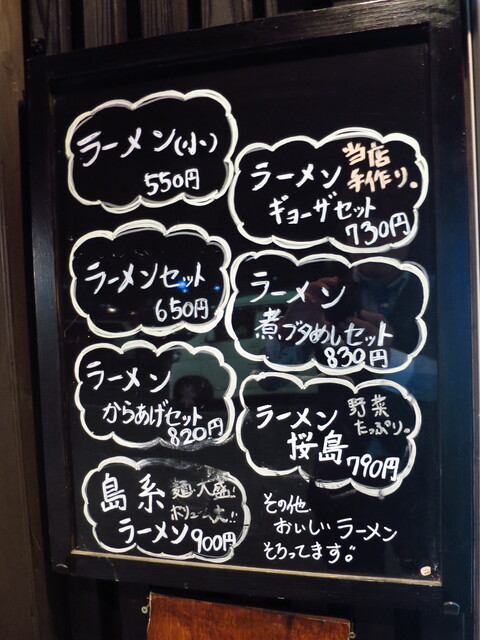 ラーメン(小)
550円
ラーメン
当店
手作り。
ギョーザセット
730円
ラーメンセット
650円
ラーメン
煮ブタめしセット
830円
ラーメン
からあげセット
820円
ラーメン
野菜
たっぷり。
桜島
790円
島系
麺大盛!
ボリューム大!!
ラーメン900円
その他
おいしいラーメン
そろってます。